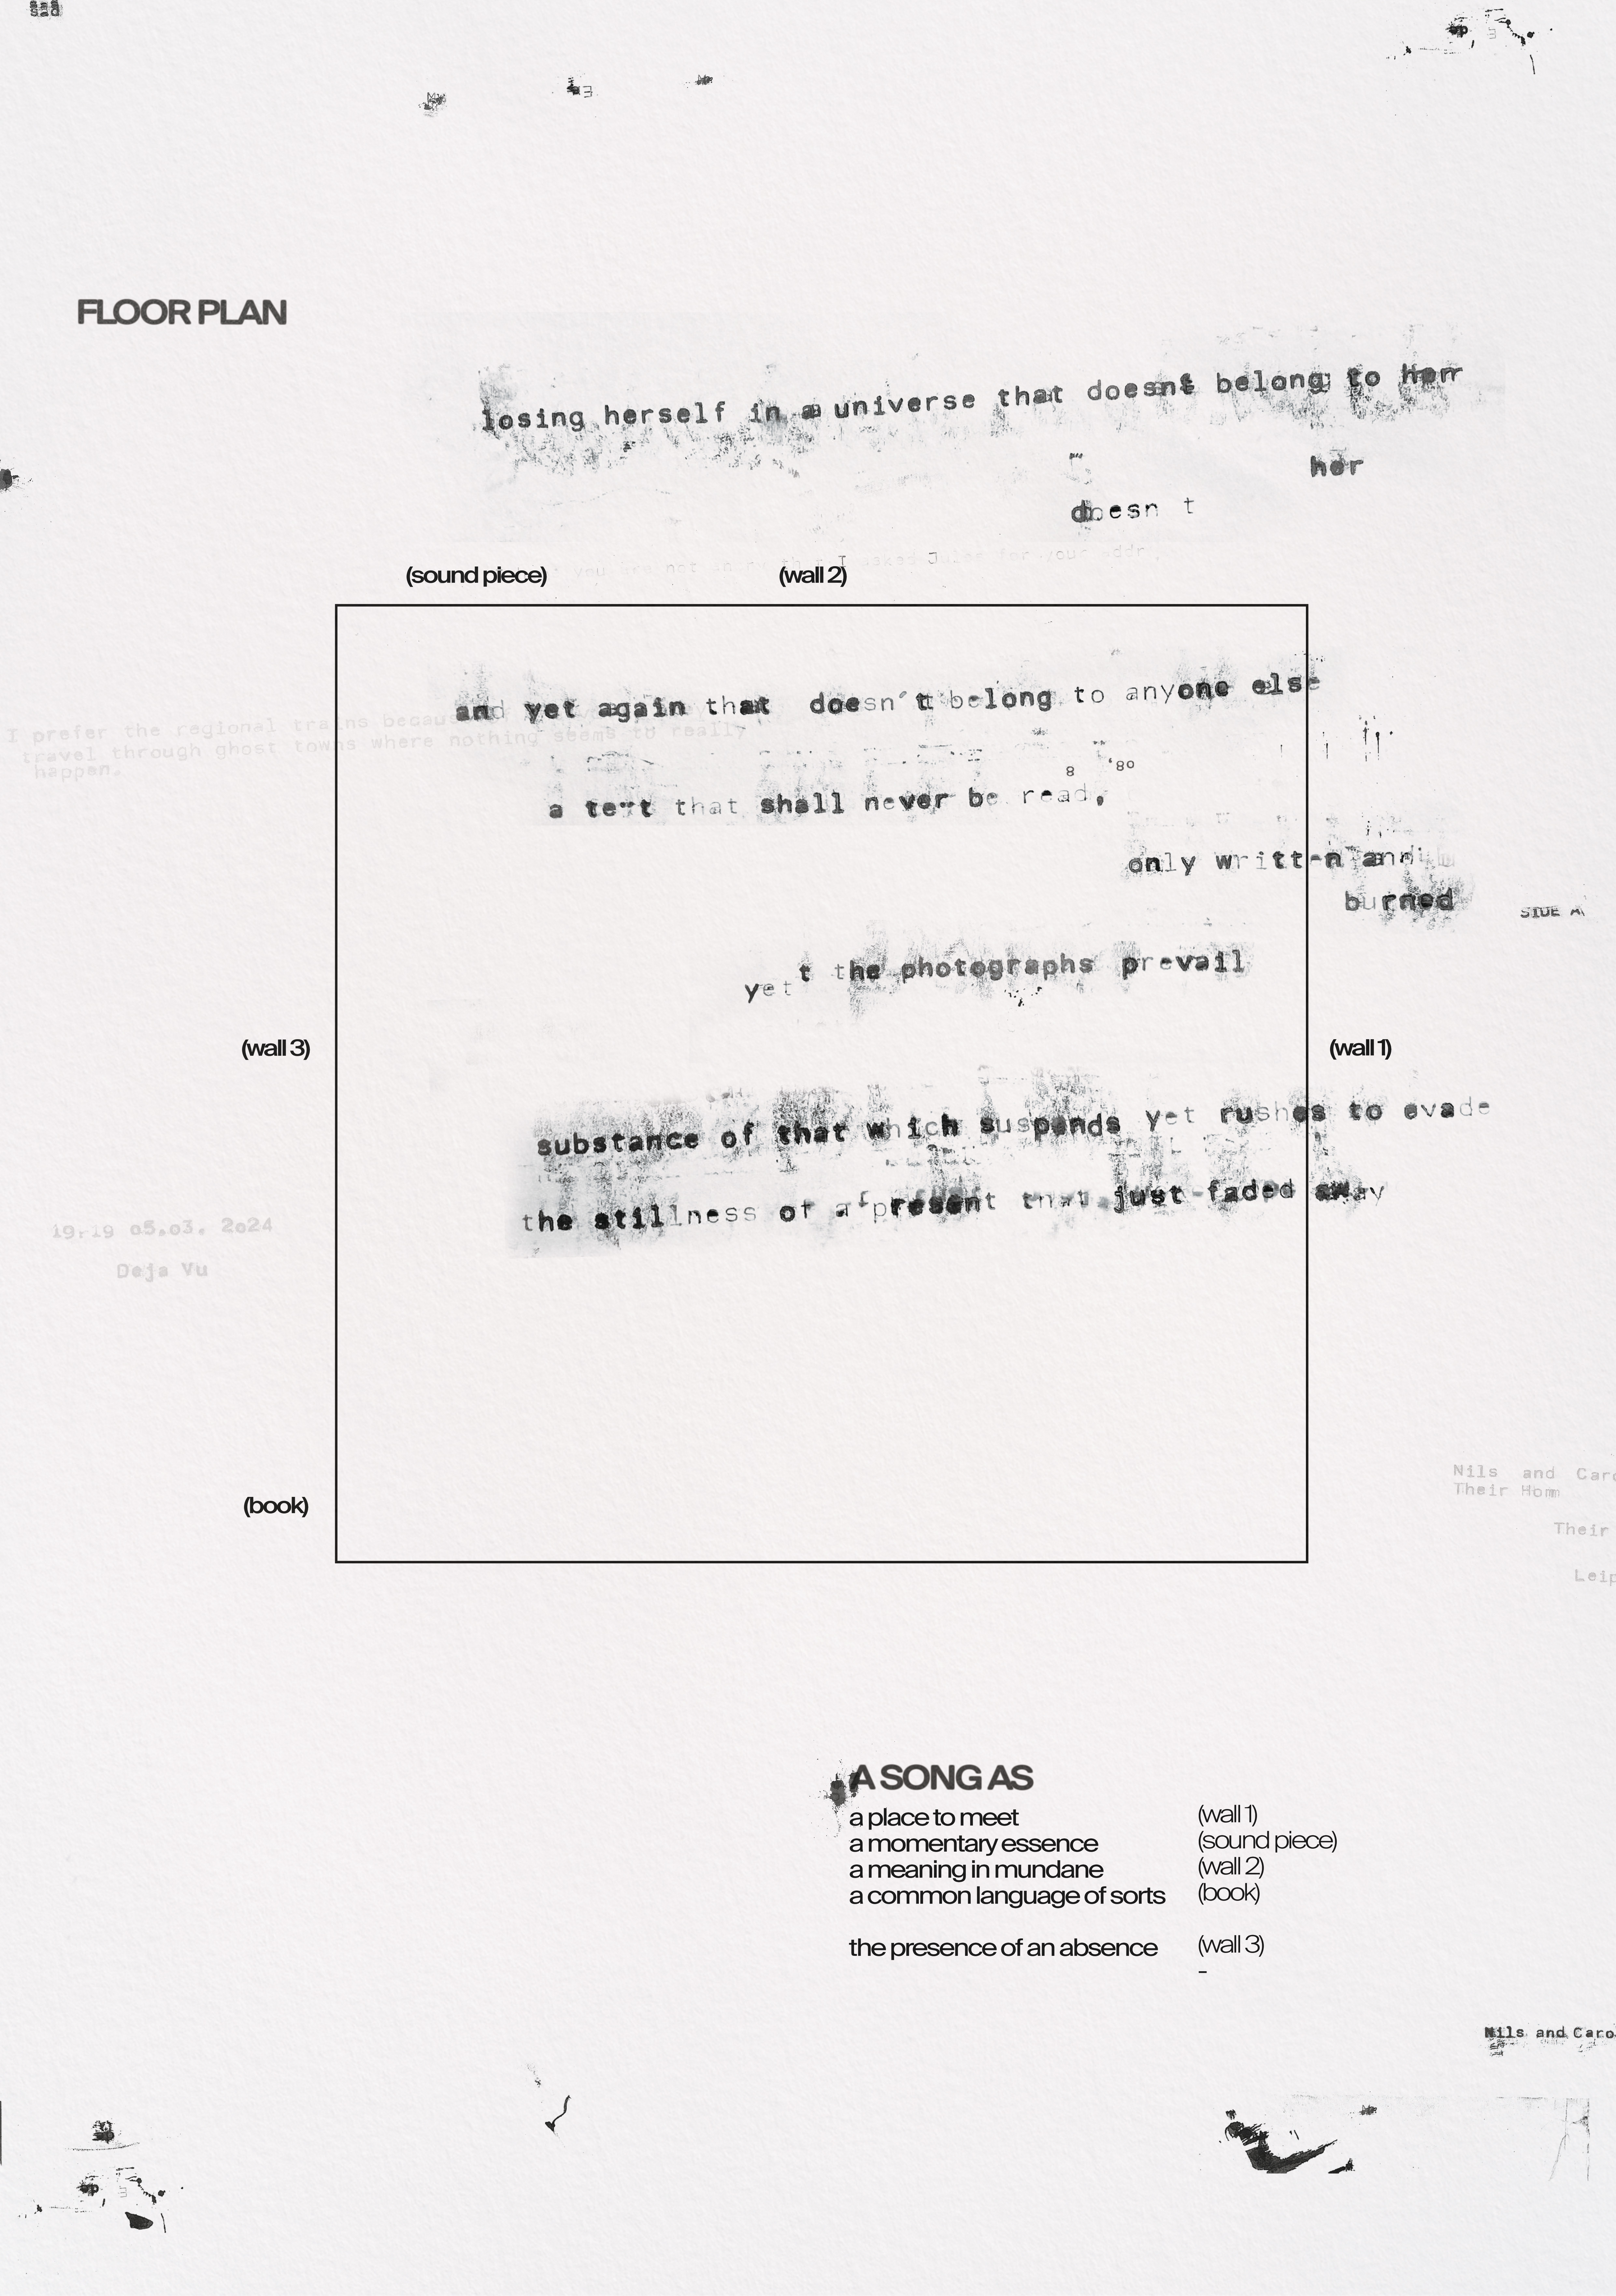 sad
FLOOR PLAN
losing herself in a universe that doesnt belong to her
her
doesn t
you are not I asked Jules for your addr
(sound piece) (wall 2)
and yet again that doesn't belong to anyone else
I prefer the regional trains becau
travel through ghost towns where nothing seems to really
happen.
8 '80
a text that shall never be read,
only written and
burned
SIDE A
t the photographs prevail
yet
(wall 3) (wall 1)
substance of that which suspends yet rushes to evade
the stillness of a present that just faded away
19:19 05.03. 2024
Deja Vu
Nils and Caro
Their Hom
(book)
Their
Leip
A SONG AS
a place to meet (wall 1)
a momentary essence (sound piece)
a meaning in mundane (wall 2)
a common language of sorts (book)
the presence of an absence (wall 3)
-
Nils and Caro